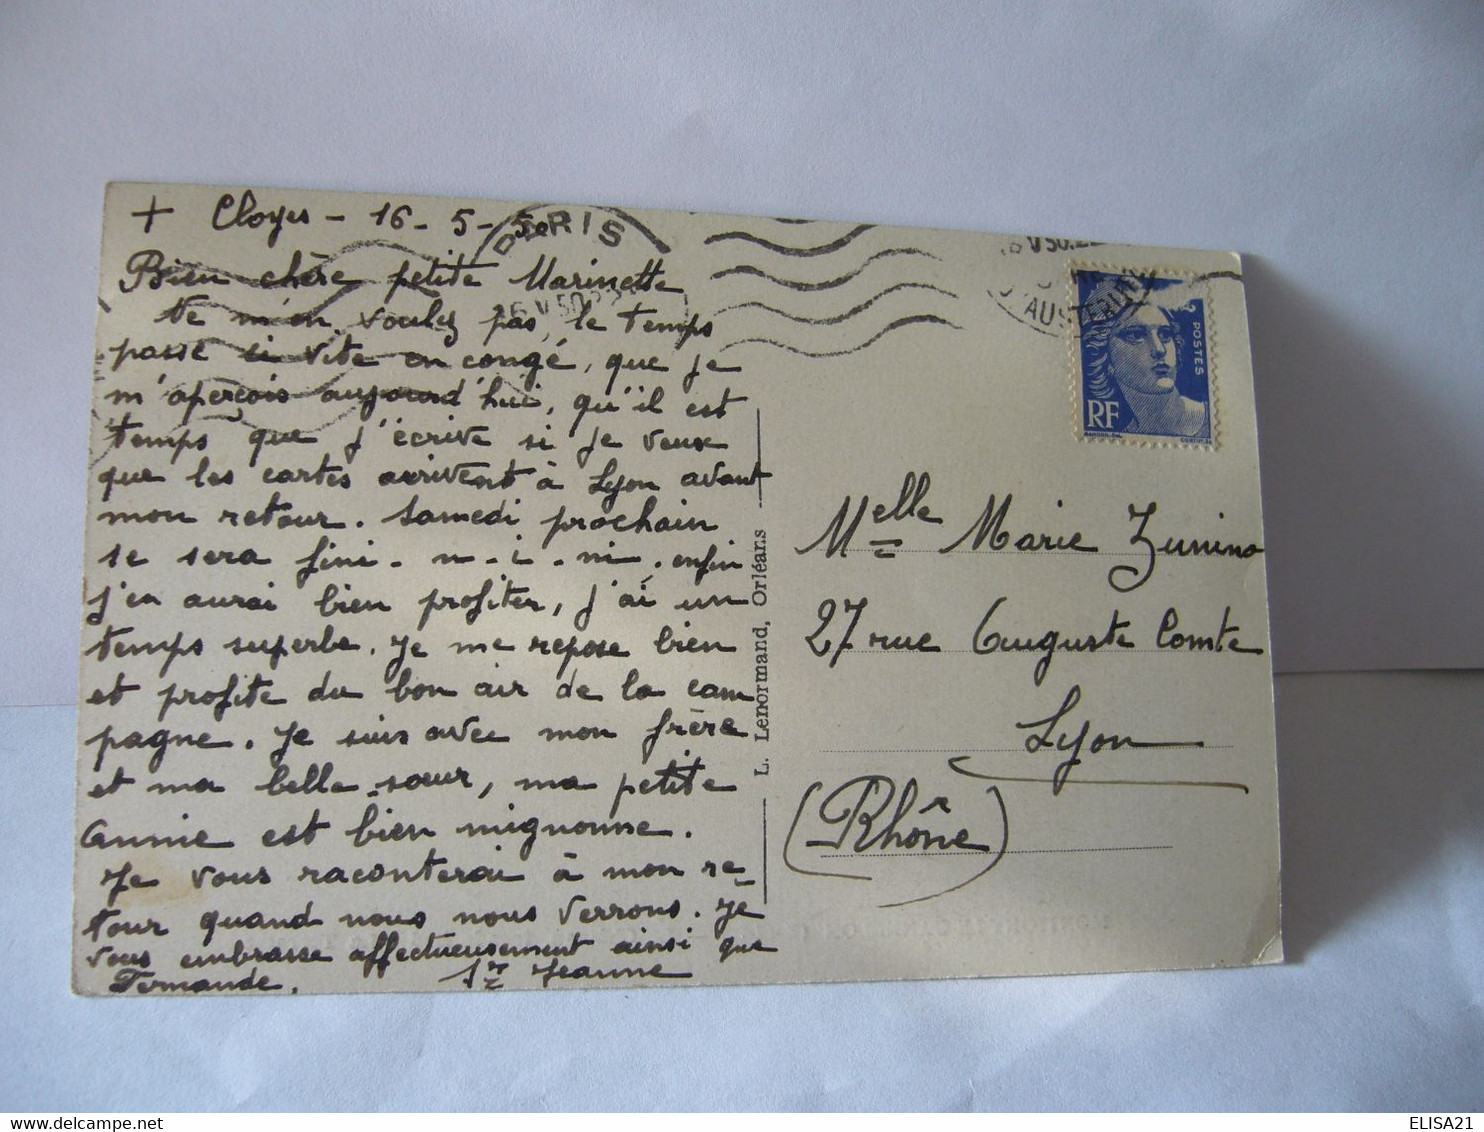 + Cloyes - 16 - 5 - 50
Bien chère petite Marinette
Ne m'en voulez pas, le temps
passe si vite en congé, que je
m'aperçois aujourd'hui, qu'il est
temps que j'écrive si je veux
que les cartes arrivent à Lyon avant
mon retour. Samedi prochain
se sera fini - n - i - ni. enfin
j'en aurai bien profiter, j'ai un
temps superbe. Je me repose bien
et profite du bon air de la cam
pagne. Je suis avec mon frère
et ma belle-sœur, ma petite
Annie est bien mignonne.
Je vous raconterai à mon re-
tour quand nous nous verrons. Je
vous embrasse affectueusement ainsi que
Fernande. Sr Jeanne
PARIS
AUSTERLITZ
POSTES
RF
L. Lenormand, Orléans
Melle Marie Zunino
27 rue Auguste Comte
Lyon
(Rhône)
ELISA21